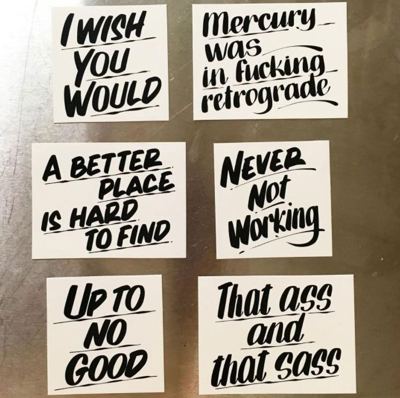 I WISH
YOU
WOULD
Mercury
was
in fucking
retrograde
A BETTER
PLACE
IS HARD
TO FIND
NEVER
Not
Working
UP TO
NO
GOOD
That ass
and
that sass